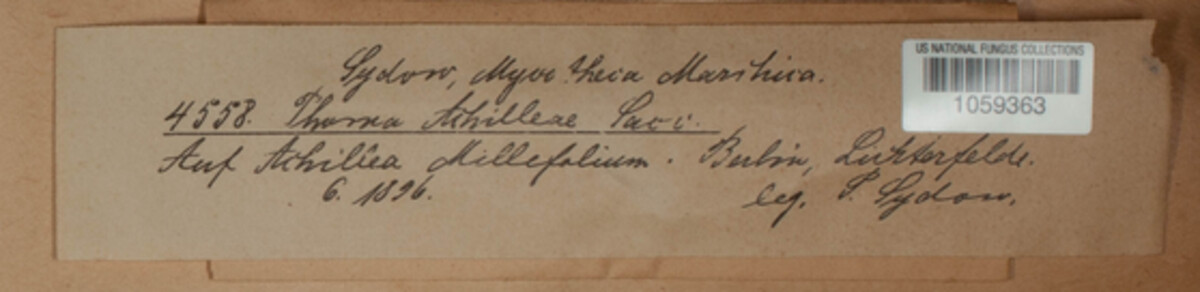 Sydow, Mycotheca Marchica.
4558. Phoma Achilleae Sacc.
Auf Achillea Millefolium. Berlin, Lichterfelde.
6. 1896. leg. P. Sydow.
US NATIONAL FUNGUS COLLECTIONS
1059363